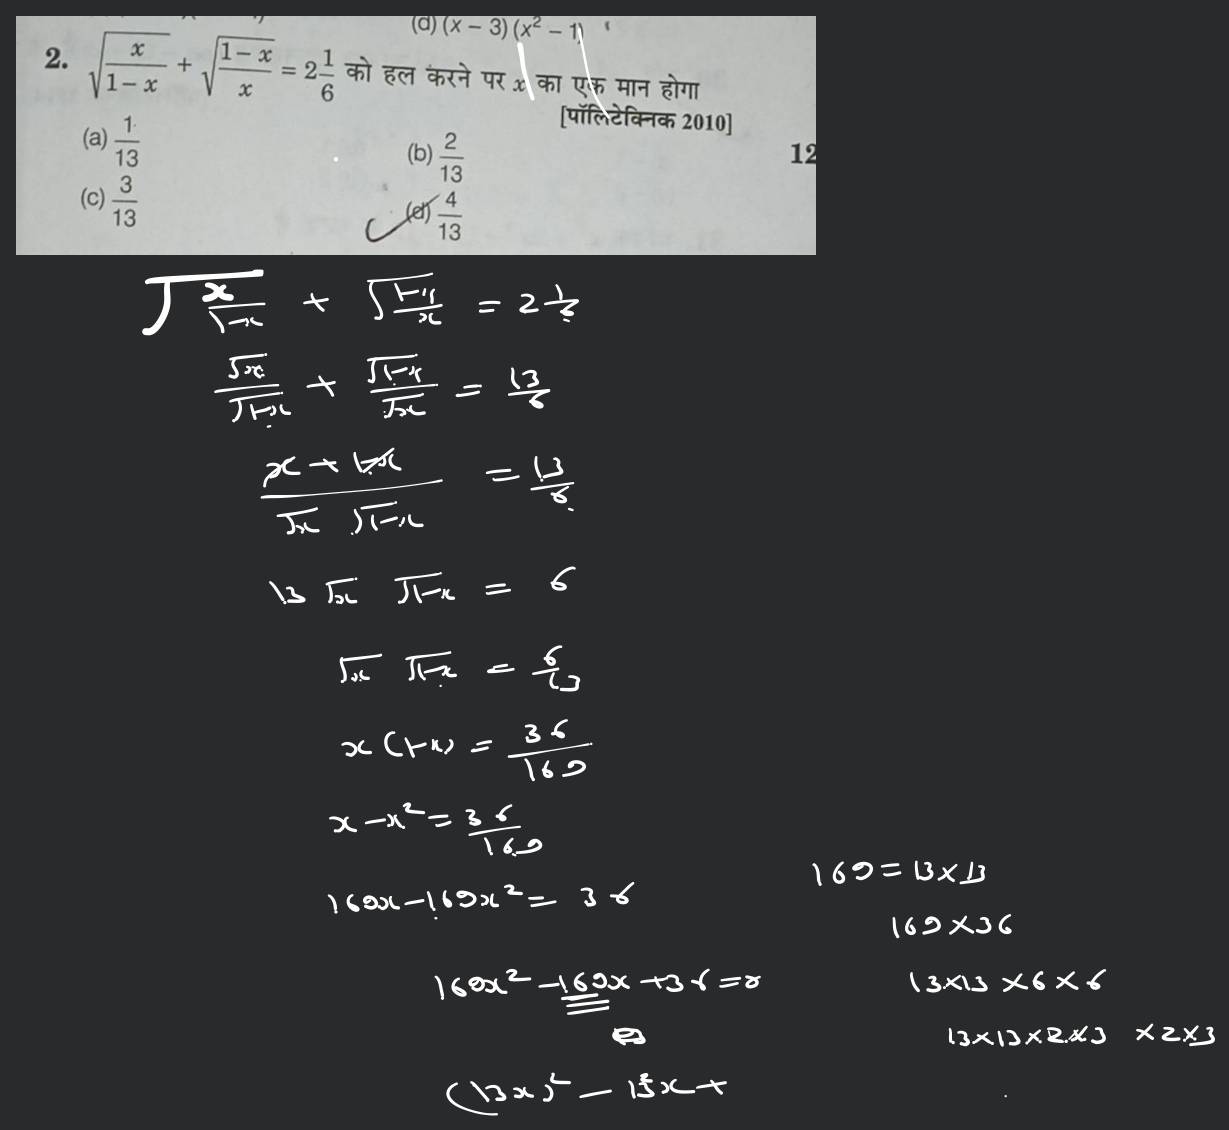 (d) (x – 3) (x² – 1)
2. √(x/(1 – x)) + √((1 – x)/x) = 2 1/6 को हल करने पर x का एक मान होगा
[पॉलिटेक्निक 2010]
(a) 1/13 (b) 2/13
12
(c) 3/13 (d) 4/13
√(x/(1-x)) + √((1-x)/x) = 2 1/6
√x/√(1-x) + √(1-x)/√x = 13/6
(x + 1-x)/(√x √(1-x)) = 13/6
13 √x √(1-x) = 6
√x √(1-x) = 6/13
x (1-x) = 36/169
x - x² = 36/169
169 = 13 × 13
169x - 169x² = 36
169 × 36
169x² - 169x + 36 = 0
13 × 13 × 6 × 6
13 × 13 × 2 × 3 × 2 × 3
(13x)² -